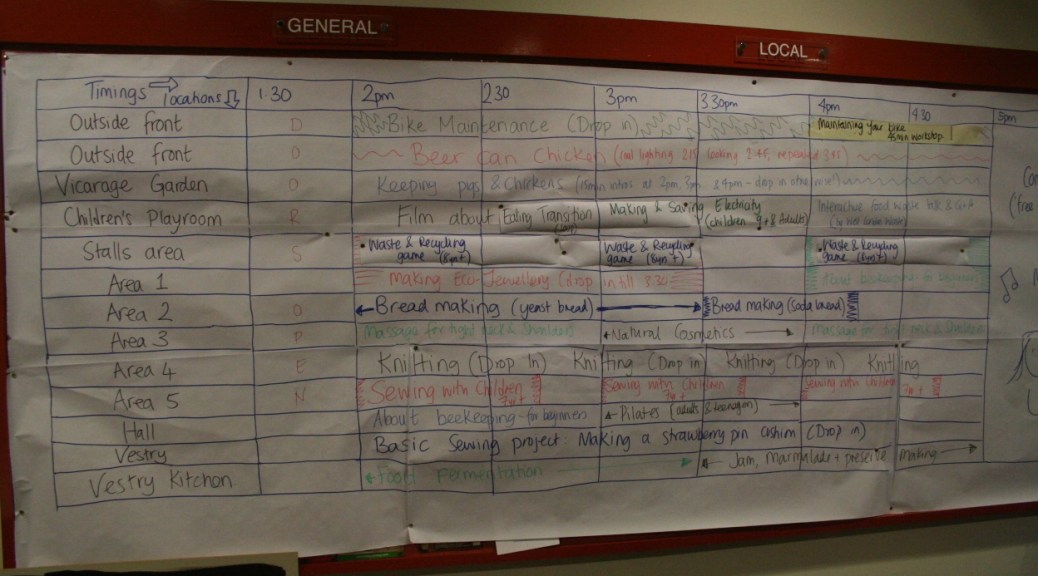 GENERAL
LOCAL
Timings locations 1.30 2pm 230 3pm 330pm 4pm 4.30 5pm
Outside front D Bike Maintenance (Drop in) Maintaining your bike
45min workshop
Outside front O Beer can Chicken (coal lighting 215 cooking 2.45, repeated 345)
Vicarage Garden O Keeping pigs & Chickens (15min intros at 2pm, 3pm & 4pm - drop in
Children's Playroom R Film about Eating Transition Making & Saving Electricity Interactive food
(children 9+ & Adults)
Stalls area S Waste & Recycling Waste & Recycling Waste & Recycling
game (8yr+) game (8yr+) game (8yr+)
Area 1 Making Eco-Jewellery (drop in till 3.30 About beekeeping for beginners
Area 2 O Bread making (yeast bread) Bread making (soda bread)
Area 3 P Massage for tight neck & Shoulders Natural Cosmetics Massage for tight neck & Shoulders
Area 4 E Knitting (Drop In) Knitting (Drop in) Knitting (Drop in) Knitting
Area 5 N Sewing with Children Sewing with Children Sewing with Children
7yr+ 7yr+ 7yr+
Hall About beekeeping for beginners Pilates (adults & teenagers)
Vestry Basic Sewing project Making a strawberry pin cushion (Drop in)
Vestry Kitchen Food Fermentation Jam, Marmalade + preserve making